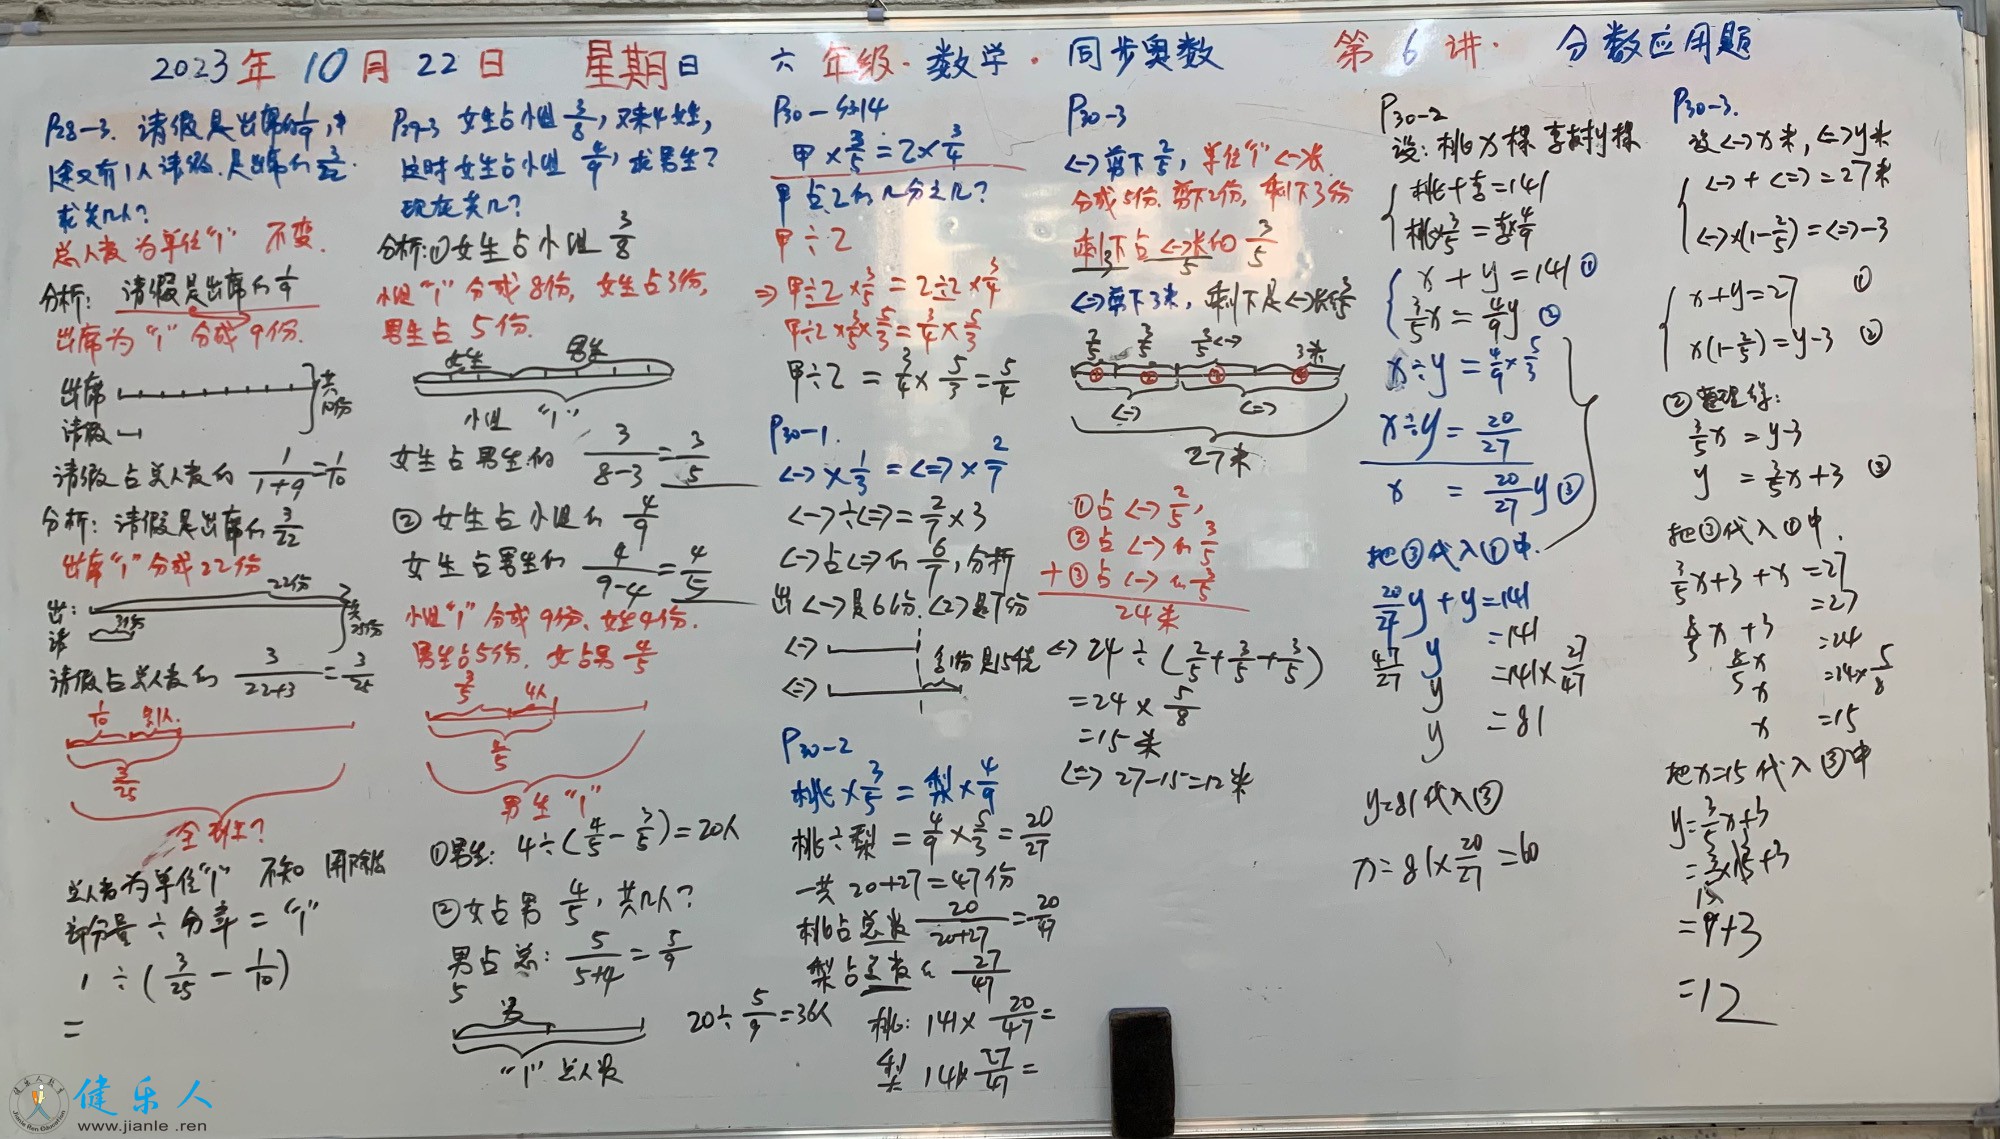 2023年 10月 22日 星期日 六年级·数学·同步奥数 第 6 讲· 分数应用题
P28-3. 请假是出席的1/9,中
途又有1人请假,是出席的3/22.
求共几人?
总人数为单位"1" 不变.
分析: 请假是出席的1/9
出席为"1"分成9份.
出席
请假
共10份
请假占总人数的 1/(1+9)=1/10
分析:请假是出席的3/22
出席"1"分成22份
22份
出:
请
3份
共25份
请假占总人数的 3/(22+3)=3/25
1/10 多1人.
3/25
全班?
总人数为单位"1" 不知 用除法
部分量÷分率="1"
1÷(3/25-1/10)
=
P29-3 女生占小组3/8,又来4女生,
这时女生占小组4/9,求男生?
现在共几?
分析:①女生占小组3/8
小组"1"分成8份,女生占3份,
男生占5份.
女生 男生
小组"1"
女生占男生的 3/(8-3)=3/5
②女生占小组的4/9
女生占男生的 4/(9-4)=4/5
小组"1"分成9份、女生4份.
男生占5份,女占男4/5
3/5 4人
4/5
男生"1"
①男生: 4÷(4/5-3/5)=20人
②女占男4/5,共几人?
男占总: 5/(5+4)=5/9
男
"1"总人数
20÷5/9=36人
P30-例14
甲×3/5=乙×3/4
甲占乙的几分之几?
甲÷乙
⇒甲÷乙×3/5=乙÷乙×3/4
甲÷乙×3/5×5/3=3/4×5/3
甲÷乙=3/4×5/3=5/4
P30-1.
<一>×1/3=<二>×2/7
<一>÷<二>=2/7×3
<一>占<二>的6/7,分析
出<一>是6份.<二>是7份
<一>
<二>
P30-2
桃×3/5=梨×4/9
桃÷梨=4/9×5/3=20/27
一共20+27=47份
桃占总数20/(20+27)=20/47
梨占总数的27/47
桃: 141×20/47=
梨 141×27/47=
P30-3
<一>剪下2/5,单位"1"<一>长.
分成5份.剪下2份,剩下3份
剩下占<一>长的3/5
<二>剪下3米,剩下是<一>长的3/5
3米
<一> <二>
27米
①占<一>2/5,
②占<一>的3/5
+③占<一>的3/5
24米
<一>24÷(2/5+3/5+3/5)
=24×5/8
=15米
<二>27-15=12米
P30-2
设:桃x棵 李树y棵
桃+李=141
桃×3/5=李×4/9
x+y=141①
3/5x=4/9y②
x÷y=4/9×5/3
x÷y=20/27
x=20/27y③
把③代入①中.
20/27y+y=141
47/27y=141
y=141×27/47
y=81
y=81代入③
x=81×20/27=60
P30-3.
设<一>x米,<二>y米
<一>+<二>=27米
<一>×(1-2/5)=<二>-3
x+y=27 ①
x(1-2/5)=y-3 ②
②整理得:
3/5x=y-3
y=3/5x+3 ③
把③代入①中.
3/5x+3+x=27
8/5x+3=27
8/5x=24
x=24×5/8
x=15
把x=15代入③中
y=3/5x+3
=3/5×15+3
=9+3
=12
健乐人
www.jianle.ren